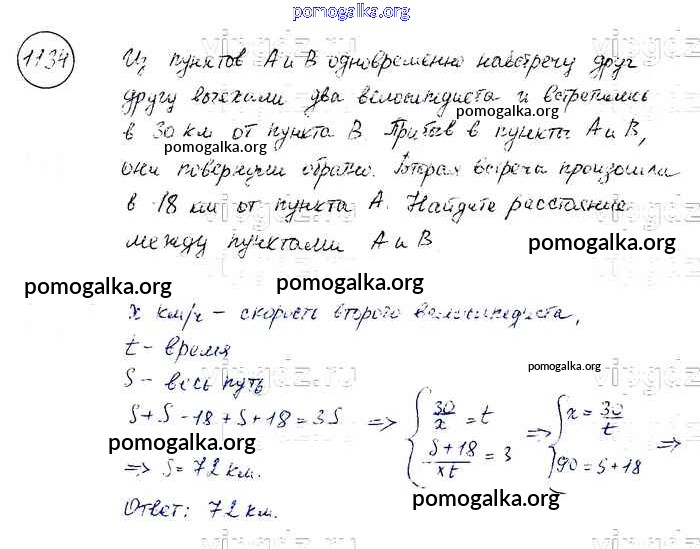 pomogalka.org
1134
Из пунктов А и В одновременно навстречу друг
другу выехали два велосипедиста и встретились
pomogalka.org
в 30 км от пункта В. Прибыв в пункты А и В,
pomogalka.org
они повернули обратно. Вторая встреча произошла
pomogalka.org
в 18 км от пункта А. Найдите расстояние
между пунктами А и В
pomogalka.org
pomogalka.org pomogalka.org
x км/ч - скорость второго велосипедиста,
t - время
pomogalka.org
S - весь путь
S + S - 18 + S + 18 = 3S => { 30/x = t => { x = 30/t =>
pomogalka.org
(S + 18)/xt = 3 90 = S + 18
=> S = 72 км.
pomogalka.org
Ответ: 72 км.
pomogalka.org